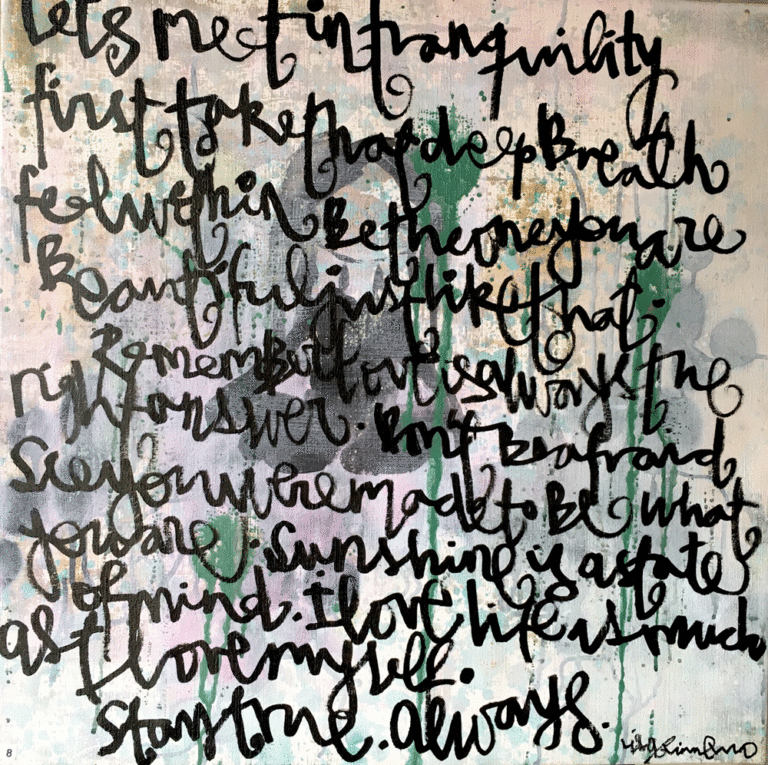 Let's meet in tranquility
first take that deep Breath
feel within Be the one you are
Beautiful just like that.
Remember love is always the
right answer. Don't Be afraid
See you were made to Be what
you are. Sunshine is a state
of mind. I love life as much
as I love myself.
Stay true. always.
8